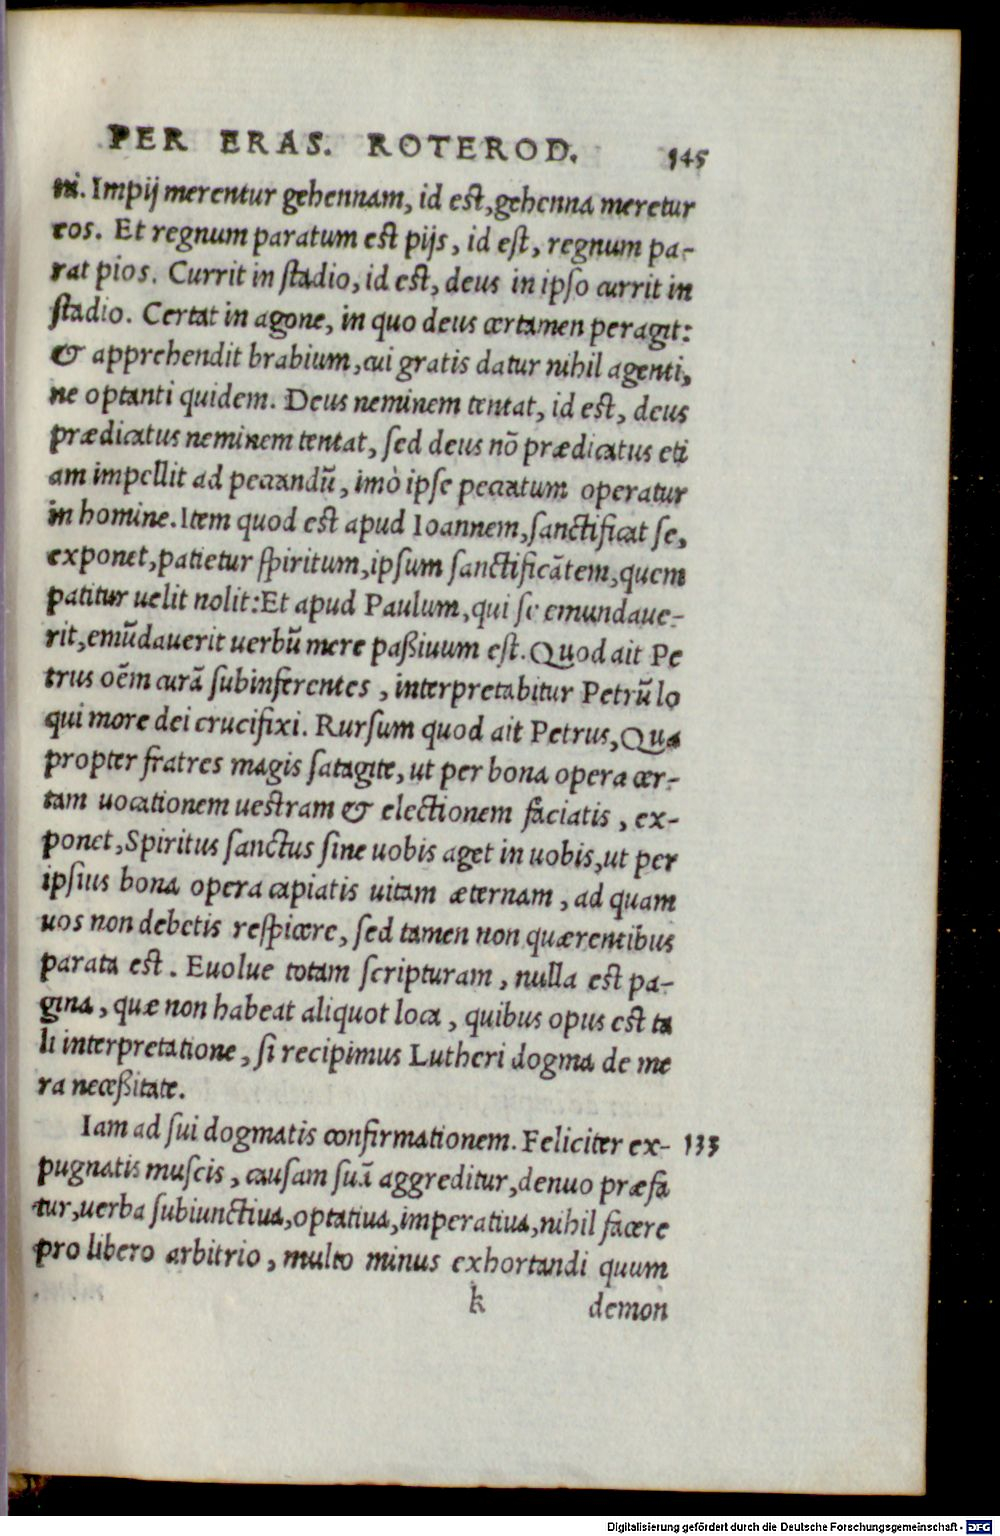 PER ERAS. ROTEROD. 145
ni. Impij merentur gehennam, id est, gehenna meretur
eos. Et regnum paratum est pijs, id est, regnum pa-
rat pios. Currit in stadio, id est, deus in ipso currit in
stadio. Certat in agone, in quo deus certamen peragit:
& apprehendit brabium, cui gratis datur nihil agenti,
ne optanti quidem. Deus neminem tentat, id est, deus
prædicatus neminem tentat, sed deus nõ prædicatus eti
am impellit ad peccandũ, imò ipse peccatum operatur
in homine. Item quod est apud Ioannem, sanctificat se,
exponet, patietur spiritum, ipsum sanctificãtem, quem
patitur uelit nolit: Et apud Paulum, qui se emundaue-
rit, emũdauerit uerbũ mere paßiuum est. Quod ait Pe
trus oẽm curã subinferentes, interpretabitur Petrũ lo
qui more dei crucifixi. Rursum quod ait Petrus, Qua
propter fratres magis satagite, ut per bona opera cer-
tam uocationem uestram & electionem faciatis, ex-
ponet, Spiritus sanctus sine uobis aget in uobis, ut per
ipsius bona opera capiatis uitam æternam, ad quam
uos non debetis respicere, sed tamen non quærentibus
parata est. Euolue totam scripturam, nulla est pa-
gina, quæ non habeat aliquot loca, quibus opus est ta
li interpretatione, si recipimus Lutheri dogma de me
ra neceßitate.
Iam ad sui dogmatis confirmationem. Feliciter ex- 133
pugnatis muscis, causam suã aggreditur, denuo præfa
tur, uerba subiunctiua, optatiua, imperatiua, nihil facere
pro libero arbitrio, multo minus exhortandi quum
k demon
Digitalisierung gefördert durch die Deutsche Forschungsgemeinschaft - DFG